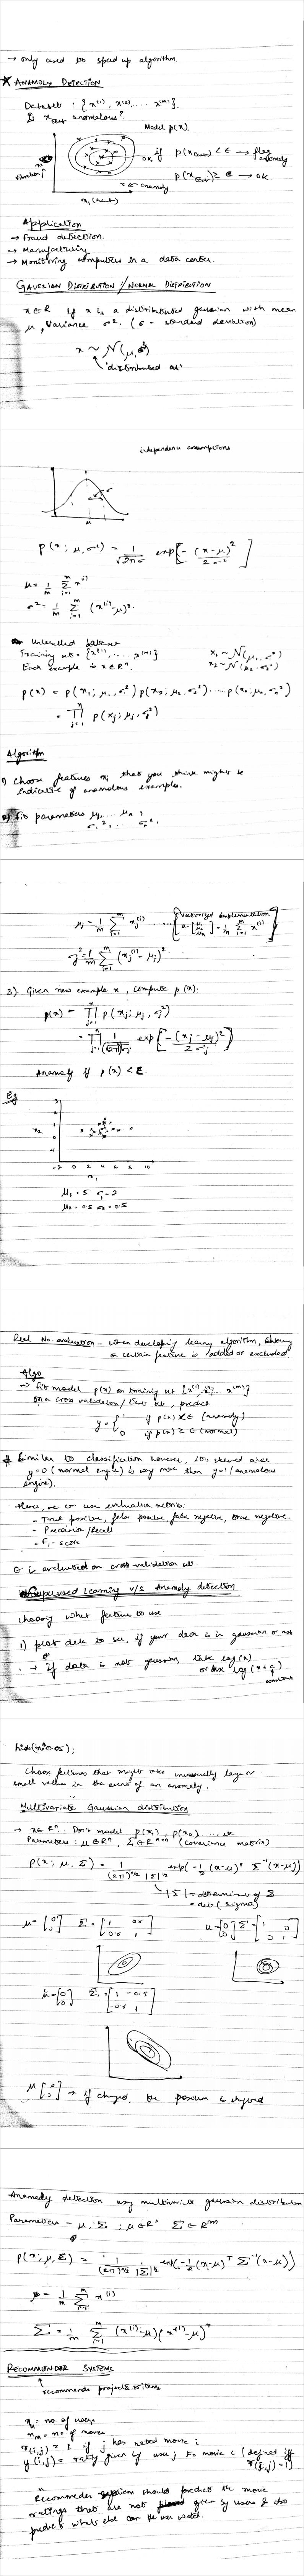 → only used to speed up algorithm.
★ ANAMOLY DETECTION
Dataset : {x⁽¹⁾, x⁽²⁾, ... x⁽ᵐ⁾}.
Is x_test anomalous?
Model p(x).
OK if p(x_test) < ε → flag anomaly
p(x_test) ≥ ε → ok.
x ← anomaly
x₁ (heat)
Application
→ Fraud detection
→ Manufacturing
→ Monitoring computers in a data center.
GAUSSIAN DISTRIBUTION / NORMAL DISTRIBUTION
x ∈ R If x is a distributed gaussian with mean
μ, Variance σ². (σ - standard deviation)
x ~ N(μ, σ²)
"distributed as"
independence assumptions
σ
μ
p(x; μ, σ²) = 1/√2π σ exp[-(x-μ)²/2σ²]
μ = 1/m Σ_{i=1}^m x⁽ⁱ⁾
σ² = 1/m Σ_{i=1}^m (x⁽ⁱ⁾-μ)².
Unlabelled dataset
Training set = {x⁽¹⁾, ... x⁽ᵐ⁾} x₁ ~ N(μ₁, σ₁²)
Each example is x ∈ Rⁿ. x₂ ~ N(μ₂, σ₂²)
p(x) = p(x₁; μ₁, σ₁²) p(x₂; μ₂, σ₂²) ... p(xₙ; μₙ, σₙ²)
= ∏_{j=1}^n p(xⱼ; μⱼ, σⱼ²)
Algorithm
1) Choose features xᵢ that you think might be
indicative of anomalous examples.
2) Fit parameters μ₁, ... μₙ,
σ₁², ... σₙ².
μⱼ = 1/m Σ_{i=1}^m xⱼ⁽ⁱ⁾ ... [Vectorized implementation
μ = 1/m Σ_{i=1}^m x⁽ⁱ⁾]
σⱼ² = 1/m Σ_{i=1}^m (xⱼ⁽ⁱ⁾-μⱼ)².
3). Given new example x, compute p(x):
p(x) = ∏_{j=1}^n p(xⱼ; μⱼ, σⱼ²)
= ∏_{j=1}^n 1/√2π σⱼ exp[-(xⱼ-μⱼ)²/2σⱼ²]
Anomaly if p(x) < ε.
Eg
x₂
-2 0 2 4 6 8 10
x₁
μ₁ = 5 σ₁ = 2
Real No. evaluation - when developing learning algorithm,
a certain feature is added or excluded.
Algo
→ Fit model p(x) on training set {x⁽¹⁾, ... x⁽ᵐ⁾}
on a cross validation / test set, predict
y = { 1 if p(x) < ε (anomaly)
0 if p(x) ≥ ε (normal)
Similar to classification however, it's skewed since
y=0 (normal engine) is very more than y=1 (anomalous
engine).
Hence, we use evaluation metrics:
- True positive, false positive, false negative, true negative.
- Precision/Recall
- F₁-score
ε is evaluated on cross validation set.
Supervised Learning v/s Anomaly detection
Choosing what feature to use
1) plot data to see, if your data is in gaussian or not
→ if data is not gaussian, take log(x)
or log(x+c)
constant
hist(x.^0.05);
Choose features that might take unusually large or
small values in the event of an anomaly.
Multivariate Gaussian distribution
→ x ∈ Rⁿ. Don't model p(x₁), p(x₂) ...
Parameters: μ ∈ Rⁿ, Σ ∈ Rⁿˣⁿ (covariance matrix)
p(x; μ, Σ) = 1/((2π)^{n/2} |Σ|^{1/2}) exp(-1/2 (x-μ)ᵀ Σ⁻¹ (x-μ))
|Σ| = determinant of Σ
= det(sigma)
μ = [0 0] Σ = [1 0.5 0.5 1] μ = [0 0] Σ = [1 0 0 1]
μ = [0 0] Σ = [1 -0.5 -0.5 1]
→ if changed, the position is changed
Anomaly detection using multivariate gaussian distribution
Parameters - μ, Σ ; μ ∈ Rⁿ Σ ∈ Rⁿˣⁿ
p(x; μ, Σ) = 1/((2π)^{n/2} |Σ|^{1/2}) exp(-1/2 (x-μ)ᵀ Σ⁻¹ (x-μ))
μ = 1/m Σ_{i=1}^m x⁽ⁱ⁾
Σ = 1/m Σ_{i=1}^m (x⁽ⁱ⁾-μ)(x⁽ⁱ⁾-μ)ᵀ
RECOMMENDER SYSTEMS
nᵤ = no. of users
nₘ = no of movies
r(i,j) = 1 if j has rated movie i
y(i,j) = rating given by user j to movie i (defined iff
r(i,j)=1)
Recommender system should predict the movie
ratings that are not given by users & also
predict what else can the user watch.